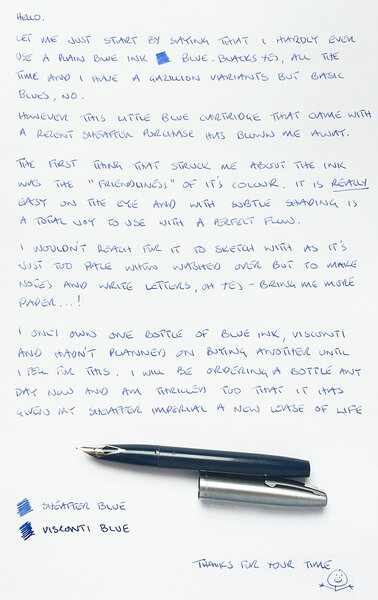 HELLO.
LET ME JUST START BY SAYING THAT I HARDLY EVER
USE A PLAIN BLUE INK BLUE-BLACKS YES, ALL THE
TIME AND I HAVE A GAZILLION VARIANTS BUT BASIC
BLUES, NO.
HOWEVER THIS LITTLE BLUE CARTRIDGE THAT CAME WITH
A RECENT SHEAFFER PURCHASE HAS BLOWN ME AWAY.
THE FIRST THING THAT STRUCK ME ABOUT THE INK
WAS THE "FRIENDLINESS" OF IT'S COLOUR. IT IS REALLY
EASY ON THE EYE AND WITH SUBTLE SHADING IS
A TOTAL JOY TO USE WITH A PERFECT FLOW.
I WOULDN'T REACH FOR IT TO SKETCH WITH AS IT'S
JUST TOO PALE WHEN WASHED OVER BUT TO MAKE
NOTES AND WRITE LETTERS, OH YES - BRING ME MORE
PAPER...!
I ONLY OWN ONE BOTTLE OF BLUE INK, VISCONTI
AND HADN'T PLANNED ON BUYING ANOTHER UNTIL
I FELL FOR THIS. I WILL BE ORDERING A BOTTLE ANY
DAY NOW AND AM THRILLED TOO THAT IT HAS
GIVEN MY SHEAFFER IMPERIAL A NEW LEASE OF LIFE
SHEAFFER BLUE
VISCONTI BLUE
THANKS FOR YOUR TIME